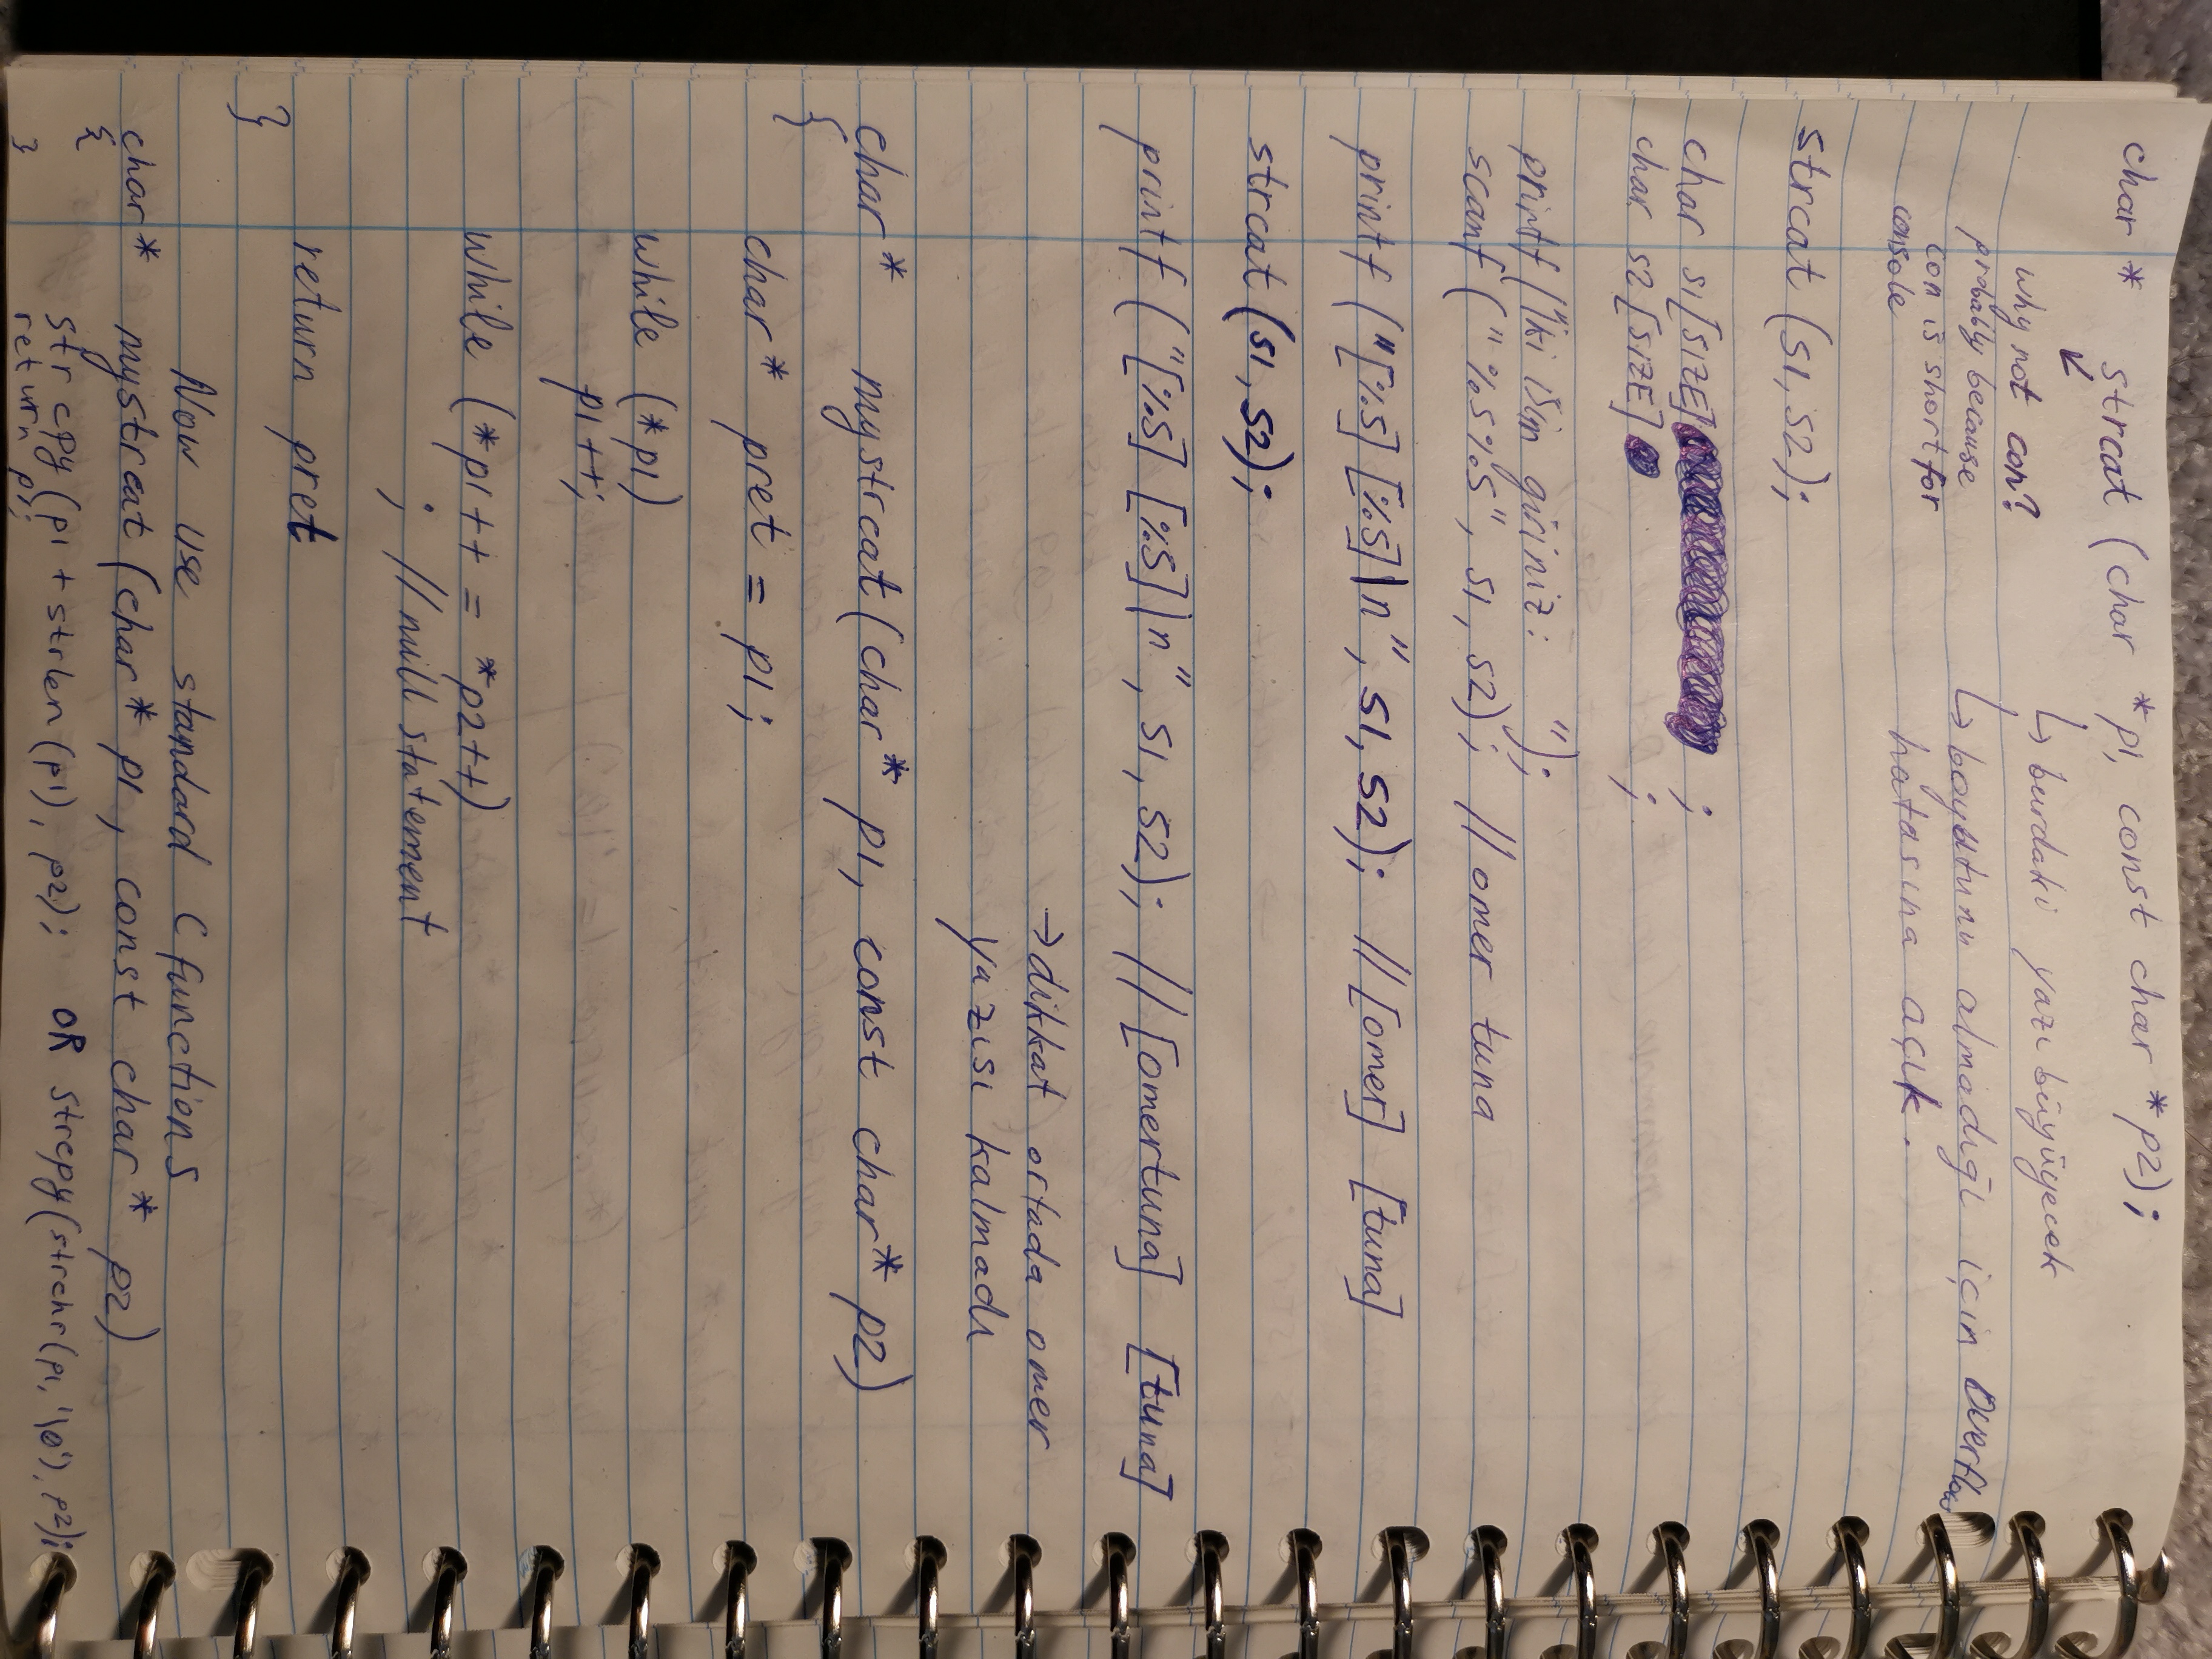 char * strcat (char *p1, const char *p2);
↳ burdaki yazı büyüyecek
why not con?
probably because
con is short for
console
↳ boyutunu almadığı için Overflow
hatasına açık.
strcat (s1, s2);
char s1[SIZE] ;
char s2[SIZE] ;
printf("İki isim giriniz: ");
scanf ("%s%s", s1, s2); // omer tuna
printf ("[%s] [%s]\n", s1, s2); // [omer] [tuna]
strcat (s1, s2);
printf ("[%s] [%s]\n", s1, s2); // [omertuna] [tuna]
→ dikkat ortada omer
yazısı kalmadı
char* mystrcat(char* p1, const char* p2)
{
char* pret = p1;
while (*p1)
p1++;
while (*p1++ = *p2++)
; //null statement
return pret
}
Now use standard C functions
char* mystrcat (char* p1, const char* p2)
{
strcpy (p1 + strlen (p1), p2); OR strcpy(strchr(p1, '\0'), p2);
return p1;
}